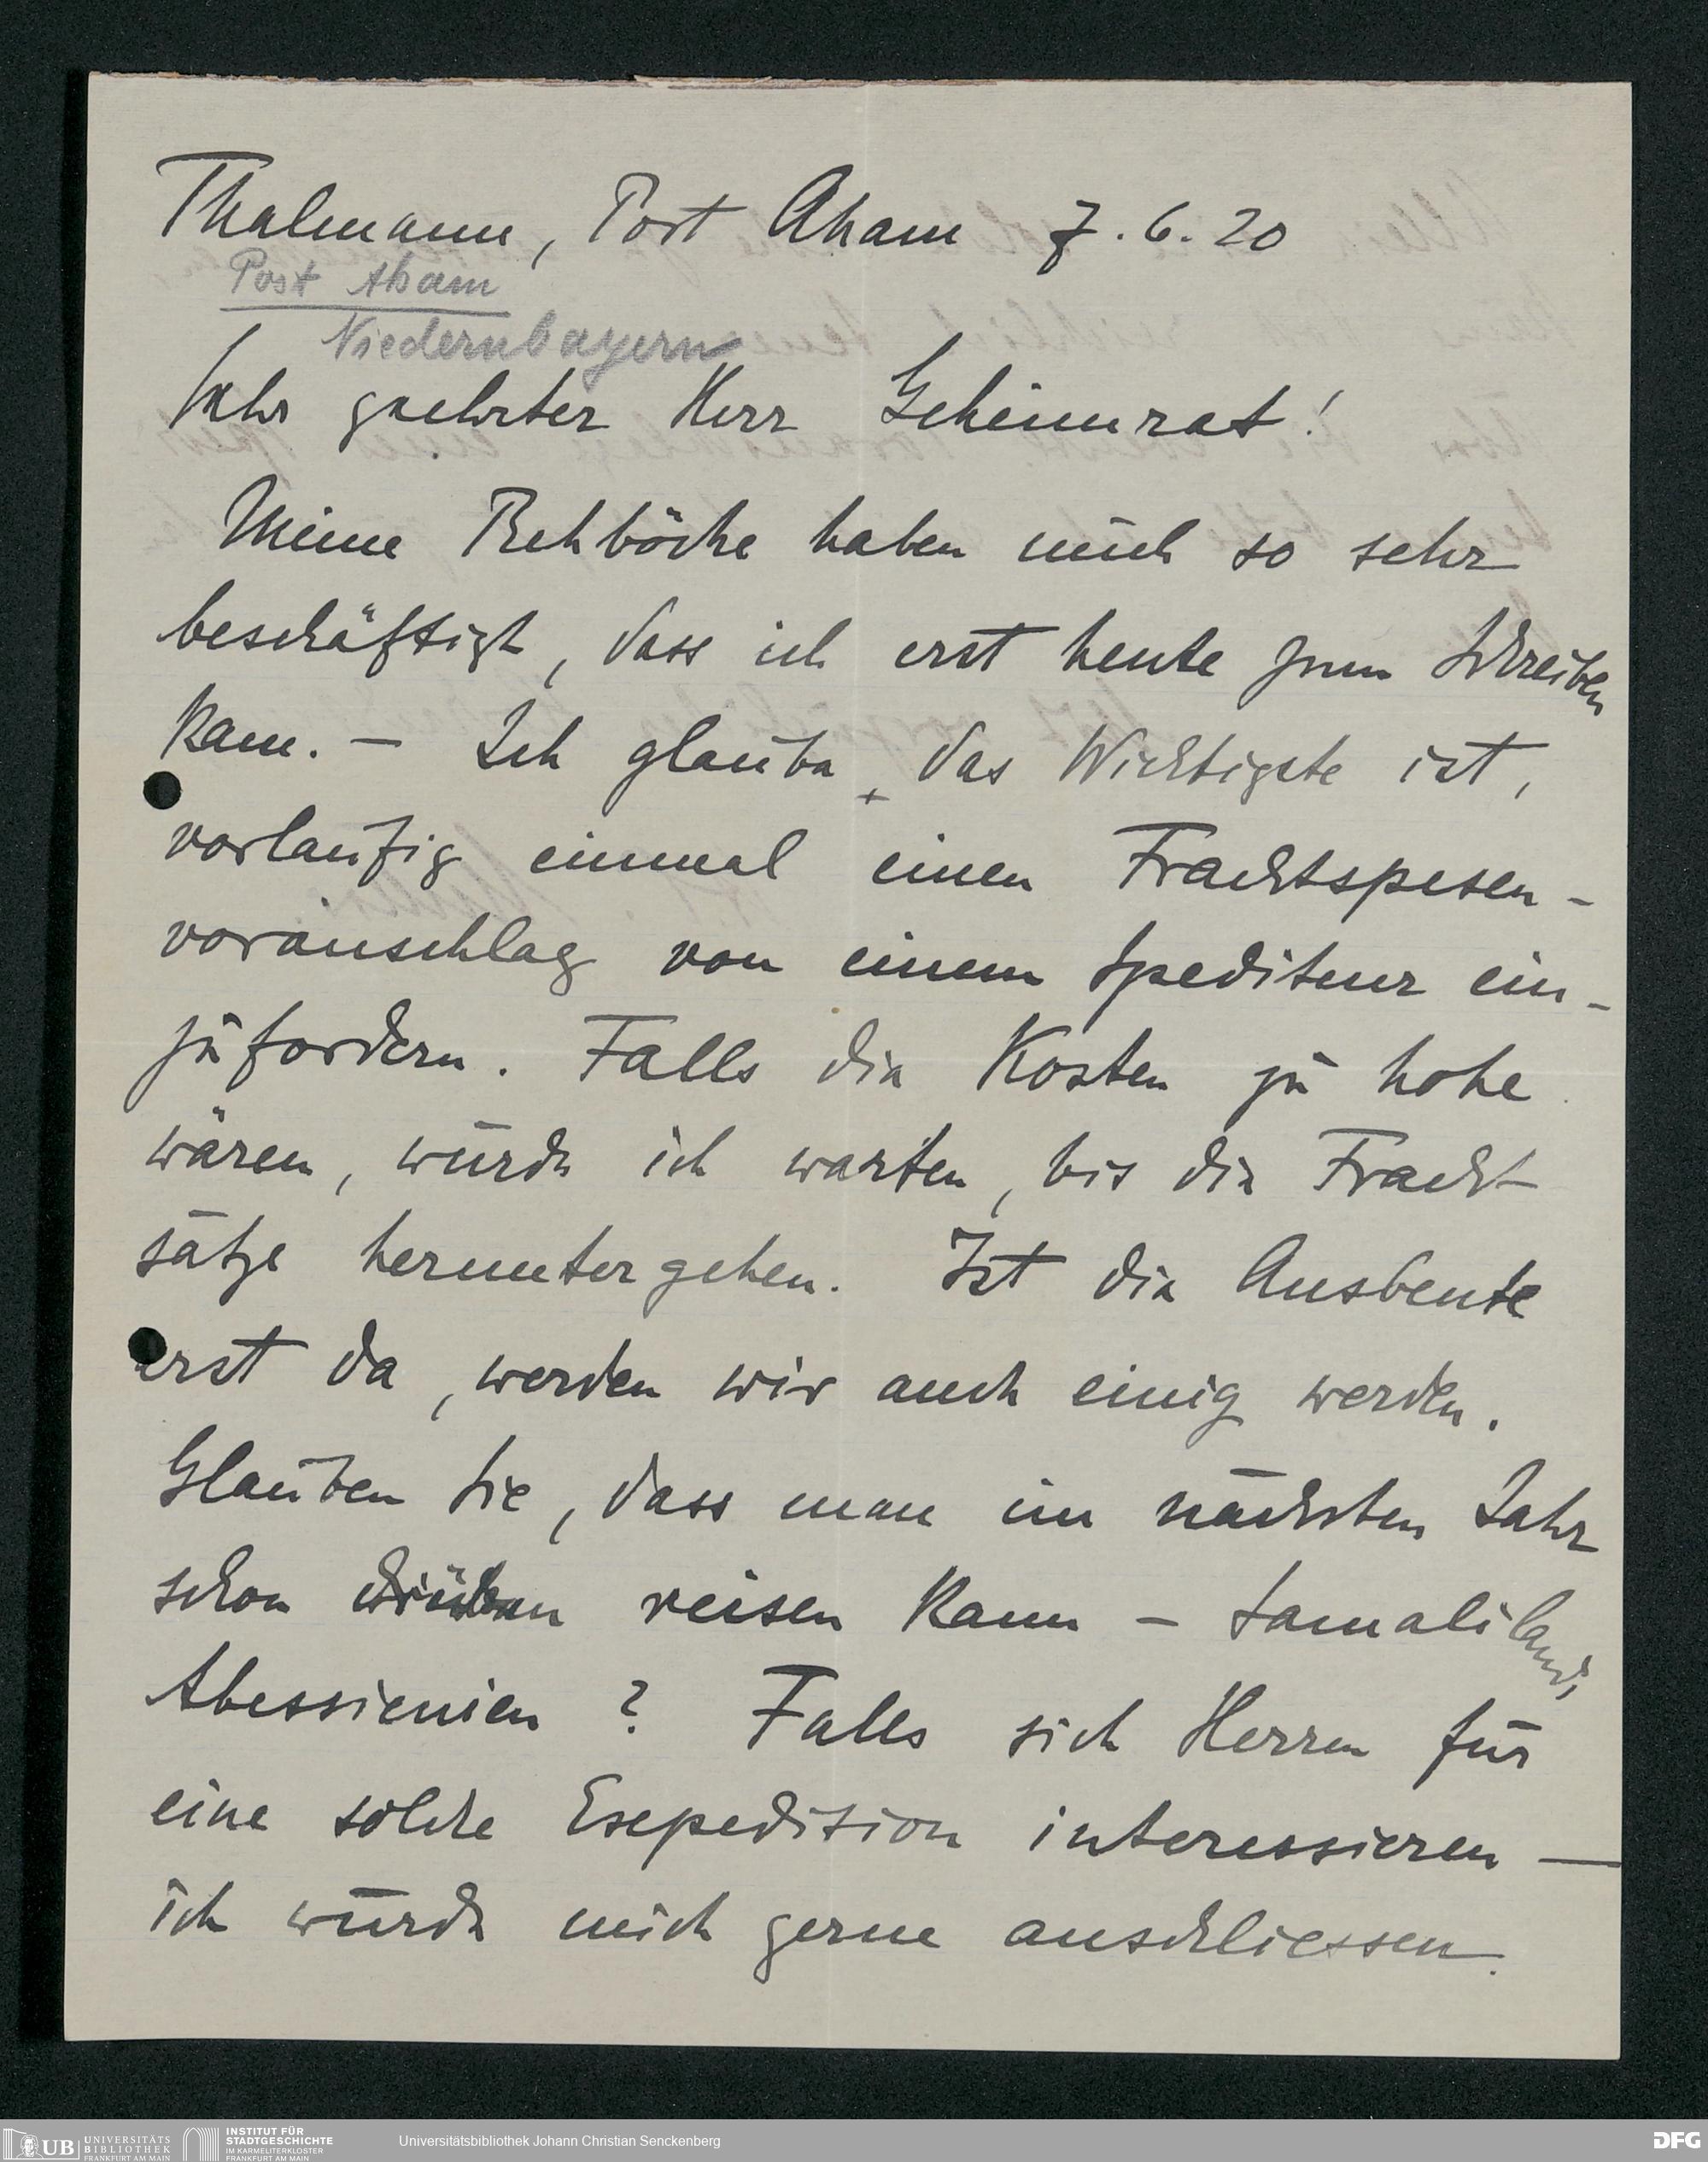 Thalmann, Post Aham 7.6.20
Post Aham
Niedernbayern
Sehr geehrter Herr Geheimrat!
Meine Rehböcke haben mich so sehr
beschäftigt, dass ich erst heute zum Schreiben
kam. – Ich glaube, das Wichtigste ist,
vorläufig einmal einen Frachtspesen-
voranschlag von einem Spediteur ein-
zufordern. Falls die Kosten zu hohe
wären, würde ich warten, bis die Fracht
sätze heruntergehen. Ist die Ausbeute
erst da, werden wir auch einig werden.
Glauben Sie, dass man im nächsten Jahr
schon drüben reisen kann – Somaliland,
Abessienien? Falls sich Herren für
eine solche Exepedition interessieren –
ich würde mich gerne anschliessen.
UB UNIVERSITÄTS
BIBLIOTHEK
FRANKFURT AM MAIN
INSTITUT FÜR
STADTGESCHICHTE
IM KARMELITERKLOSTER
FRANKFURT AM MAIN
Universitätsbibliothek Johann Christian Senckenberg
DFG